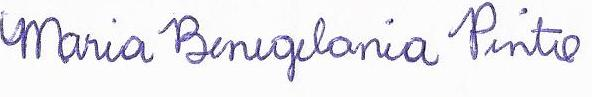 Maria Benegelania Pinto